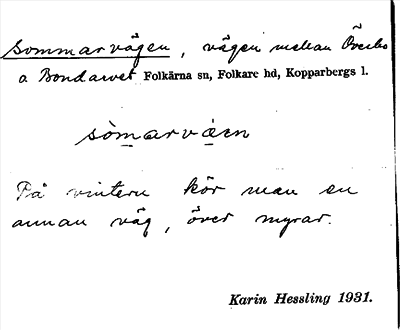 Sommarvägen, vägen mellan Överbo
a Bondarvet Folkärna sn, Folkare hd, Kopparbergs l.
sòmarväen
På vintern kör man en
annan väg, över myrar.
Karin Hessling 1931.